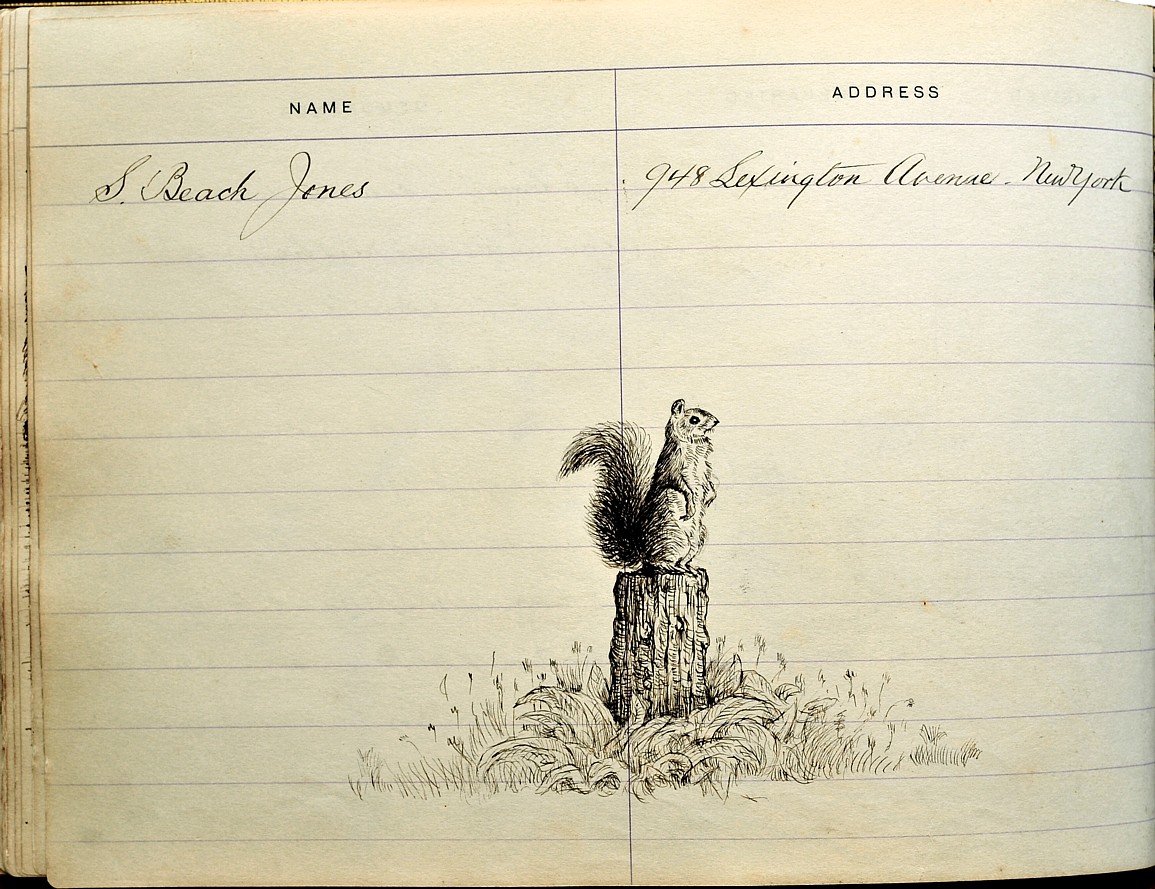 NAME ADDRESS
S. Beach Jones 948 Lexington Avenue. New York